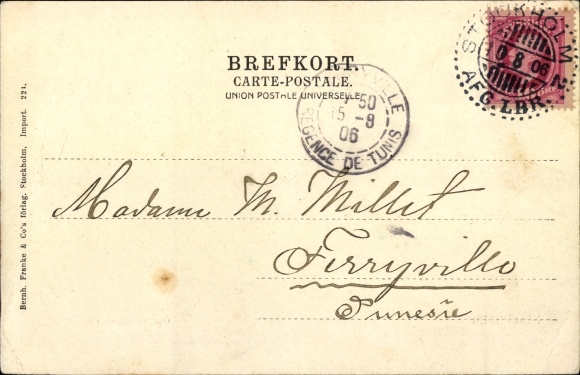 BREFKORT.
CARTE-POSTALE.
UNION POSTALE UNIVERSELLE
STOCKHOLM 2
8 06
AFG. LBR.
VILLE
50
15 -9
06
REGENCE DE TUNIS
Madame M. Millet
Ferryville
Tunesie
Bernh. Franke & Co's förlag, Stockholm, Import. 224.